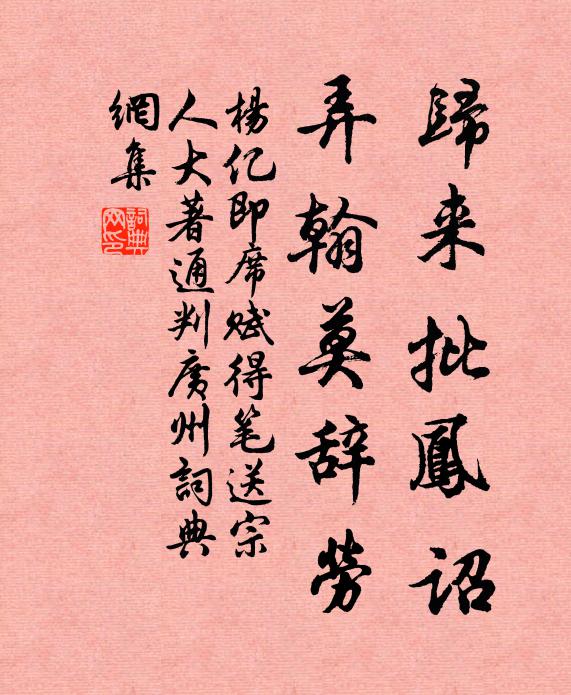 歸来批鳳詔
弄翰莫辞勞
楊亿即席赋得笔送宗
人大著通判廣州詞典
網集
詞典网印